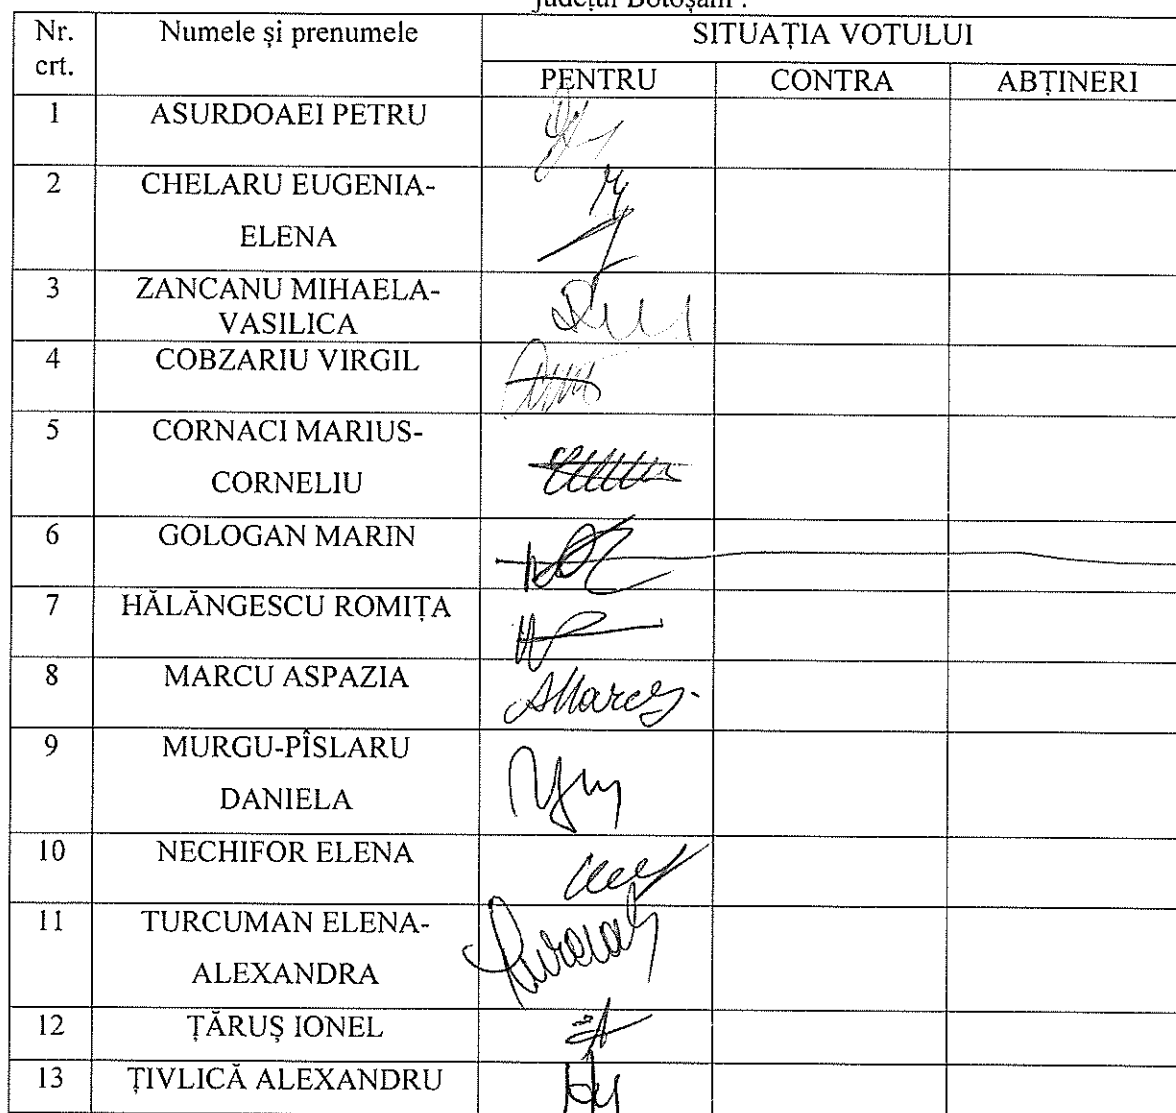 județul Botoșani .
Nr. crt. Numele și prenumele SITUAȚIA VOTULUI
PENTRU CONTRA ABȚINERI
1 ASURDOAEI PETRU
2 CHELARU EUGENIA-
ELENA
3 ZANCANU MIHAELA-
VASILICA
4 COBZARIU VIRGIL
5 CORNACI MARIUS-
CORNELIU
6 GOLOGAN MARIN
7 HĂLĂNGESCU ROMIȚA
8 MARCU ASPAZIA
9 MURGU-PÎSLARU
DANIELA
10 NECHIFOR ELENA
11 TURCUMAN ELENA-
ALEXANDRA
12 ȚĂRUȘ IONEL
13 ȚIVLICĂ ALEXANDRU